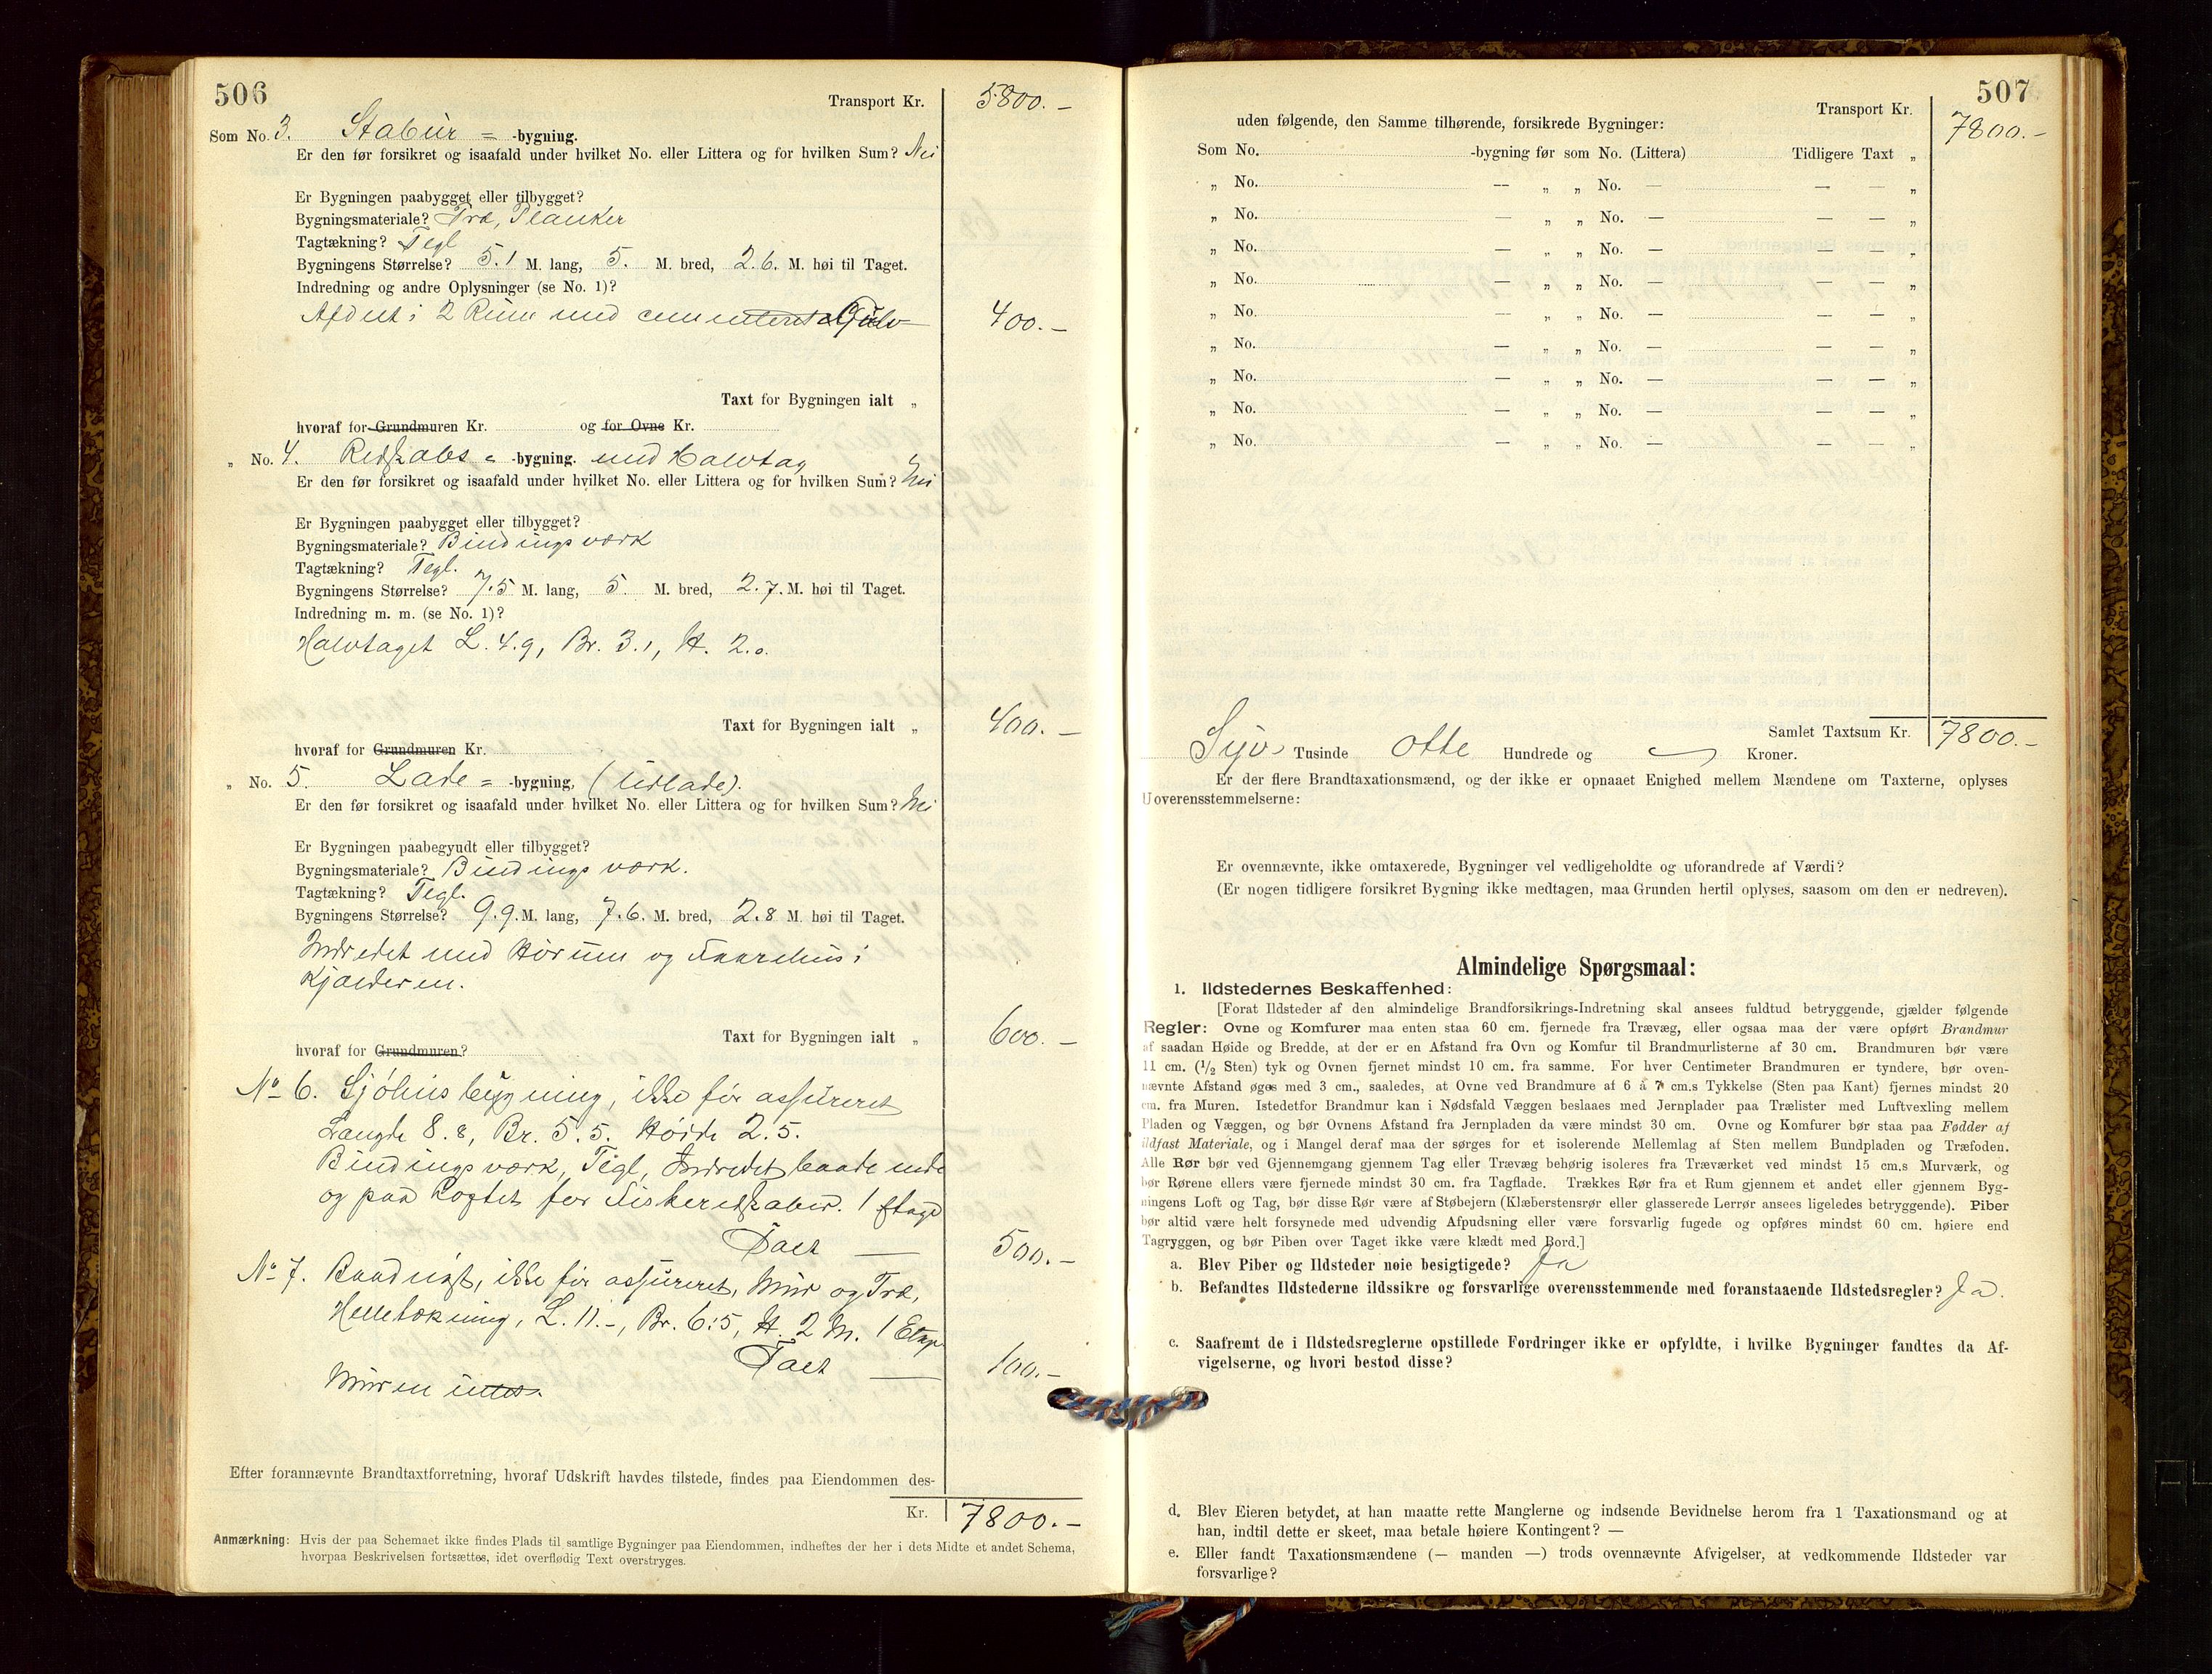 506
Transport Kr. 5800.-
Som No. 3. Stabur = -bygning.
Er den før forsikret og isaafald under hvilket No. eller Littera og for hvilken Sum? Nei
Er Bygningen paabygget eller tilbygget?
Bygningsmateriale? Træ, Planker
Tagtækning? Tegl
Bygningens Størrelse? 5.1 M. lang, 5. M. bred, 2.6. M. høi til Taget.
Indredning og andre Oplysninger (se No. 1)?
Afdelt i 2 Rum med cementeret Gulv 400.-
Taxt for Bygningen ialt „
hvoraf for Grundmuren Kr. og for Ovne Kr.
„ No. 4. Redskabs = -bygning. med Halvtag
Er den før forsikret og isaafald under hvilket No. eller Littera og for hvilken Sum? Nei
Er Bygningen paabygget eller tilbygget?
Bygningsmateriale? Bindingsværk
Tagtækning? Tegl.
Bygningens Størrelse? 7.5 M. lang, 5. M. bred, 2.7. M. høi til Taget.
Indredning m. m. (se No. 1)?
Halvtaget L. 4.9, Br. 3.1, H. 2.0.
Taxt for Bygningen ialt „ 400.-
hvoraf for Grundmuren Kr.
„ No. 5. Lade = -bygning, (Udlade).
Er den før forsikret og isaafald under hvilket No. eller Littera og for hvilken Sum? Nei
Er Bygningen paabegyndt eller tilbygget?
Bygningsmateriale? Bindingsværk.
Tagtækning? Tegl.
Bygningens Størrelse? 9.9. M. lang, 7.6. M. bred, 2.8 M. høi til Taget.
Indredet med Hørum og Faarehus i
Kjælderen.
Taxt for Bygningen ialt „ 600.-
hvoraf for Grundmuren?
No 6. Sjøhusbygning, ikke før assureret
Længde 8.8, Br. 5.5. Høide 2.5.
Bindingsværk, Tegl, Indredet baade nede
og paa Loftet for Fiskeredskaber. 1 Etage
Taxt — 500.-
No 7. Baadnøst, ikke før assureret, Mur og Træ,
Helletækning, L. 11.-, Br. 6.5, H. 2 M. 1 Etage
Taxt — 100.-
Muren
Efter forannævnte Brandtaxtforretning, hvoraf Udskrift havdes tilstede, findes paa Eiendommen des-
Kr. 7800.-
Anmærkning: Hvis der paa Schemaet ikke findes Plads til samtlige Bygninger paa Eiendommen, indheftes der her i dets Midte et andet Schema,
hvorpaa Beskrivelsen fortsættes, idet overflødig Text overstryges.
507
Transport Kr. 7800.-
uden følgende, den Samme tilhørende, forsikrede Bygninger:
Som No. -bygning før som No. (Littera) Tidligere Taxt „
„ No. — „ „ No. — — — „
„ No. — „ „ No. — — — „
„ No. — „ „ No. — — — „
„ No. — „ „ No. — — — „
„ No. — „ „ No. — — — „
„ No. — „ „ No. — — — „
„ No. — „ „ No. — — — „
„ No. — „ „ No. — — — „
„ No. — „ „ No. — — — „
Samlet Taxtsum Kr. 7800.-
Syv Tusinde otte Hundrede og Kroner.
Er der flere Brandtaxationsmænd, og der ikke er opnaaet Enighed mellem Mændene om Taxterne, oplyses
Uoverensstemmelserne:
Er ovennævnte, ikke omtaxerede, Bygninger vel vedligeholdte og uforandrede af Værdi?
(Er nogen tidligere forsikret Bygning ikke medtagen, maa Grunden hertil oplyses, saasom om den er nedreven).
Almindelige Spørgsmaal:
1. Ildstedernes Beskaffenhed:
[Forat Ildsteder af den almindelige Brandforsikrings-Indretning skal ansees fuldtud betryggende, gjælder følgende
Regler: Ovne og Komfurer maa enten staa 60 cm. fjernede fra Trævæg, eller ogsaa maa der være opført Brandmur
af saadan Høide og Bredde, at der er en Afstand fra Ovn og Komfur til Brandmurlisterne af 30 cm. Brandmuren bør være
11 cm. (1/2 Sten) tyk og Ovnen fjernet mindst 10 cm. fra samme. For hver Centimeter Brandmuren er tyndere, bør oven-
nævnte Afstand øges med 3 cm., saaledes, at Ovne ved Brandmure af 6 à 7 cm.s Tykkelse (Sten paa Kant) fjernes mindst 20
cm. fra Muren. Istedetfor Brandmur kan i Nødsfald Væggen beslaaes med Jernplader paa Trælister med Luftvexling mellem
Pladen og Væggen, og bør Ovnens Afstand fra Jernpladen da være mindst 30 cm. Ovne og Komfurer bør staa paa Fødder af
ildfast Materiale, og i Mangel deraf maa der sørges for et isolerende Mellemlag af Sten mellem Bundpladen og Træfoden.
Alle Rør bør ved Gjennemgang gjennem Tag eller Trævæg behørig isoleres fra Træværket ved mindst 15 cm.s Murværk, og
bør Rørene ellers være fjernede mindst 30 cm. fra Tagflade. Trækkes Rør fra et Rum gjennem et andet eller gjennem Byg-
ningens Loft og Tag, bør disse Rør være af Støbejern (Klæberstensrør eller glasserede Lerrør ansees ligeledes betryggende). Piber
bør altid være helt forsynede med udvendig Afpudsning eller være forsvarlig fugede og opføres mindst 60 cm. høiere end
Tagryggen, og bør Piben over Taget ikke være klædt med Bord.]
a. Blev Piber og Ildsteder nøie besigtigede? Ja
b. Befandtes Ildstederne ildssikre og forsvarlige overensstemmende med foranstaaende Ildstedsregler? Ja.
c. Saafremt de i Ildstedsreglerne opstillede Fordringer ikke er opfyldte, i hvilke Bygninger fandtes da Af-
vigelserne, og hvori bestod disse?
d. Blev Eieren betydet, at han maatte rette Manglerne og indsende Bevidnelse herom fra 1 Taxationsmand og at
han, indtil dette er skeet, maa betale høiere Kontingent? —
e. Eller fandt Taxationsmændene (— manden —) trods ovennævnte Afvigelser, at vedkommende Ildsteder var
forsvarlige?